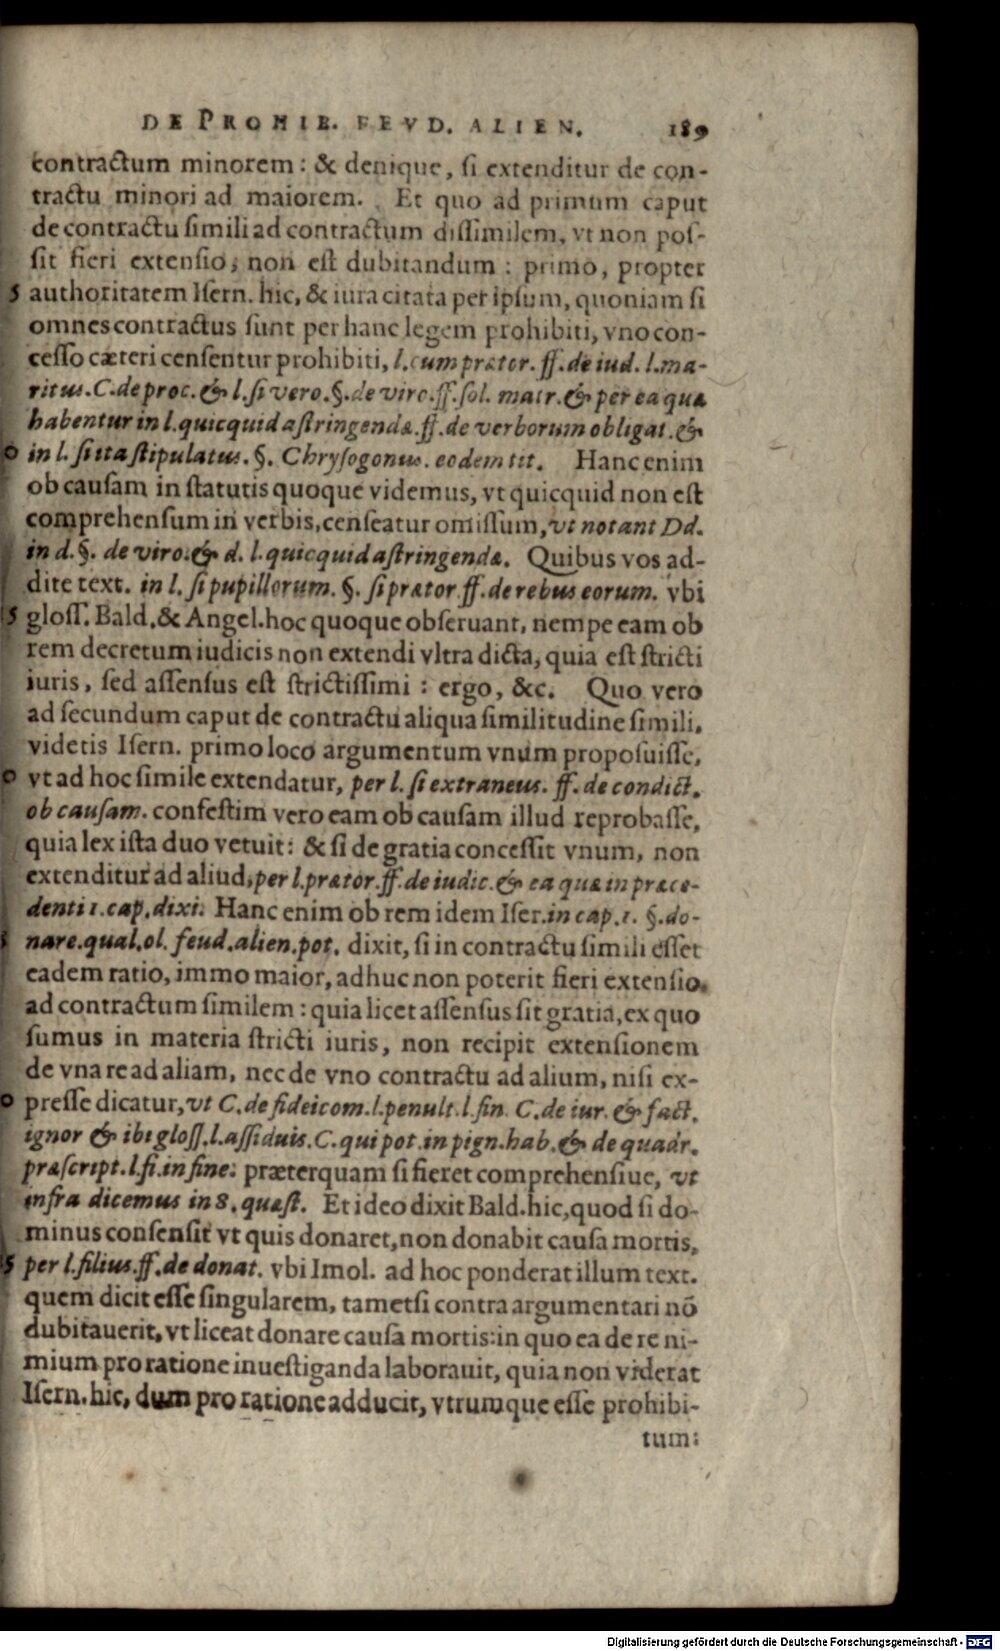 DE PROHIB. FEVD. ALIEN. 189
contractum minorem: & denique, ſi extenditur de con-
tractu minori ad maiorem. Et quo ad primum caput
de contractu ſimili ad contractum diſſimilem, vt non poſ-
ſit fieri extenſio, non eſt dubitandum: primo, propter
5 authoritatem Iſern. hic, & iura citata per ipſum, quoniam ſi
omnes contractus ſunt per hanc legem prohibiti, vno con-
ceſſo cæteri cenſentur prohibiti, l. cum prætor. ff. de iud. l. ma-
ritus. C. de proc. & l. ſi vero. §. de viro. ff. ſol. matr. & per ea quæ
habentur in l. quicquid aſtringendæ. ff. de verborum obligat. &
0 in l. ſi ita ſtipulatus. §. Chryſogonus. eodem tit. Hanc enim
ob cauſam in ſtatutis quoque videmus, vt quicquid non eſt
comprehenſum in verbis, cenſeatur omiſſum, vt notant Dd.
in d. §. de viro. & d. l. quicquid aſtringendæ. Quibus vos ad-
dite text. in l. ſi pupillorum. §. ſi prætor ff. de rebus eorum. vbi
5 gloſſ. Bald. & Angel. hoc quoque obſeruant, nempe eam ob
rem decretum iudicis non extendi vltra dicta, quia eſt ſtricti
iuris, ſed aſſenſus eſt ſtrictiſſimi: ergo, &c. Quo vero
ad ſecundum caput de contractu aliqua ſimilitudine ſimili,
videtis Iſern. primo loco argumentum vnum propoſuiſſe,
0 vt ad hoc ſimile extendatur, per l. ſi extraneus. ff. de condict.
ob cauſam. confeſtim vero eam ob cauſam illud reprobaſſe,
quia lex iſta duo vetuit: & ſi de gratia conceſſit vnum, non
extenditur ad aliud, per l. prætor. ff. de iudic. & ea quæ in præce-
denti 1. cap. dixi. Hanc enim ob rem idem Iſer. in cap. 1. §. do-
nare. qual. ol. feud. alien. pot. dixit, ſi in contractu ſimili eſſet
eadem ratio, immo maior, adhuc non poterit fieri extenſio
ad contractum ſimilem: quia licet aſſenſus ſit gratia, ex quo
ſumus in materia ſtricti iuris, non recipit extenſionem
de vna re ad aliam, nec de vno contractu ad alium, niſi ex-
0 preſſe dicatur, vt C. de fideicom. l. penult. l. fin. C. de iur. & fact.
ignor & ibi gloſſ. l. aſſiduis. C. qui pot. in pign. hab. & de quadr.
præſcript. l. fi. in fine: præterquam ſi fieret comprehenſiue, vt
infra dicemus in 8. quæſt. Et ideo dixit Bald. hic, quod ſi do-
minus conſenſit vt quis donaret, non donabit cauſa mortis,
5 per l. filius. ff. de donat. vbi Imol. ad hoc ponderat illum text.
quem dicit eſſe ſingularem, tametſi contra argumentari nō
dubitauerit, vt liceat donare cauſa mortis: in quo ea de re ni-
mium pro ratione inueſtiganda laborauit, quia non viderat
Iſern. hic, dum pro ratione adducit, vtrumque eſſe prohibi-
tum:
Digitalisierung gefördert durch die Deutsche Forschungsgemeinschaft - DFG